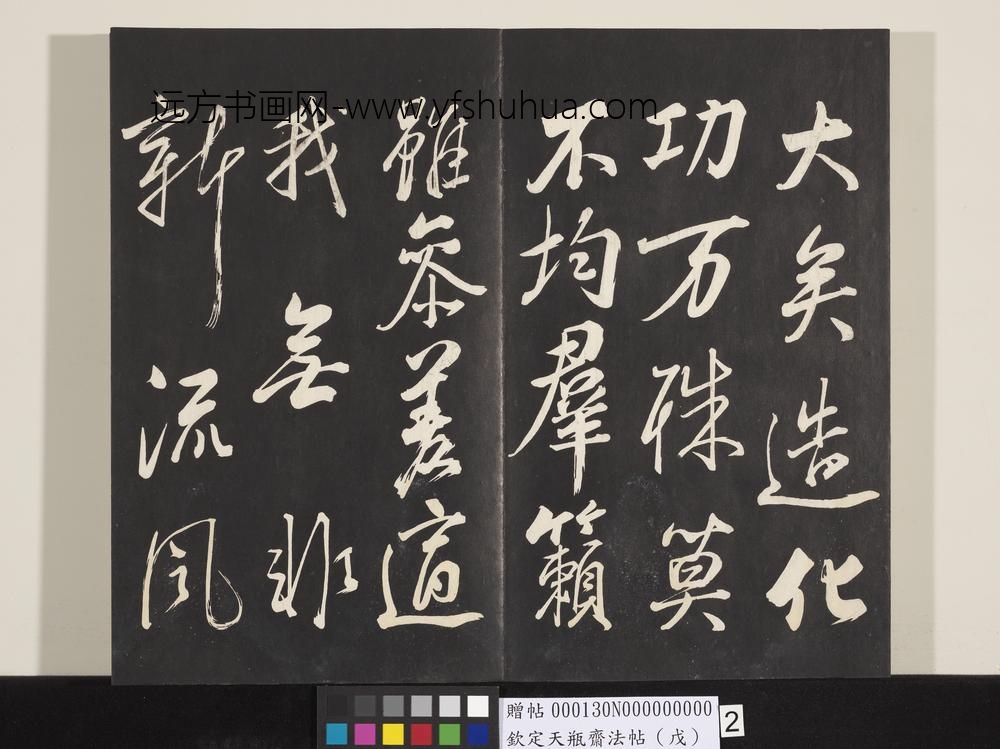 远方书画网-www.yfshuhua.com
大矣造化
功万殊莫
不均羣籟
雖叅差適
我無非
新流風
贈帖 000130N000000000
欽定天瓶齋法帖（戊）
2